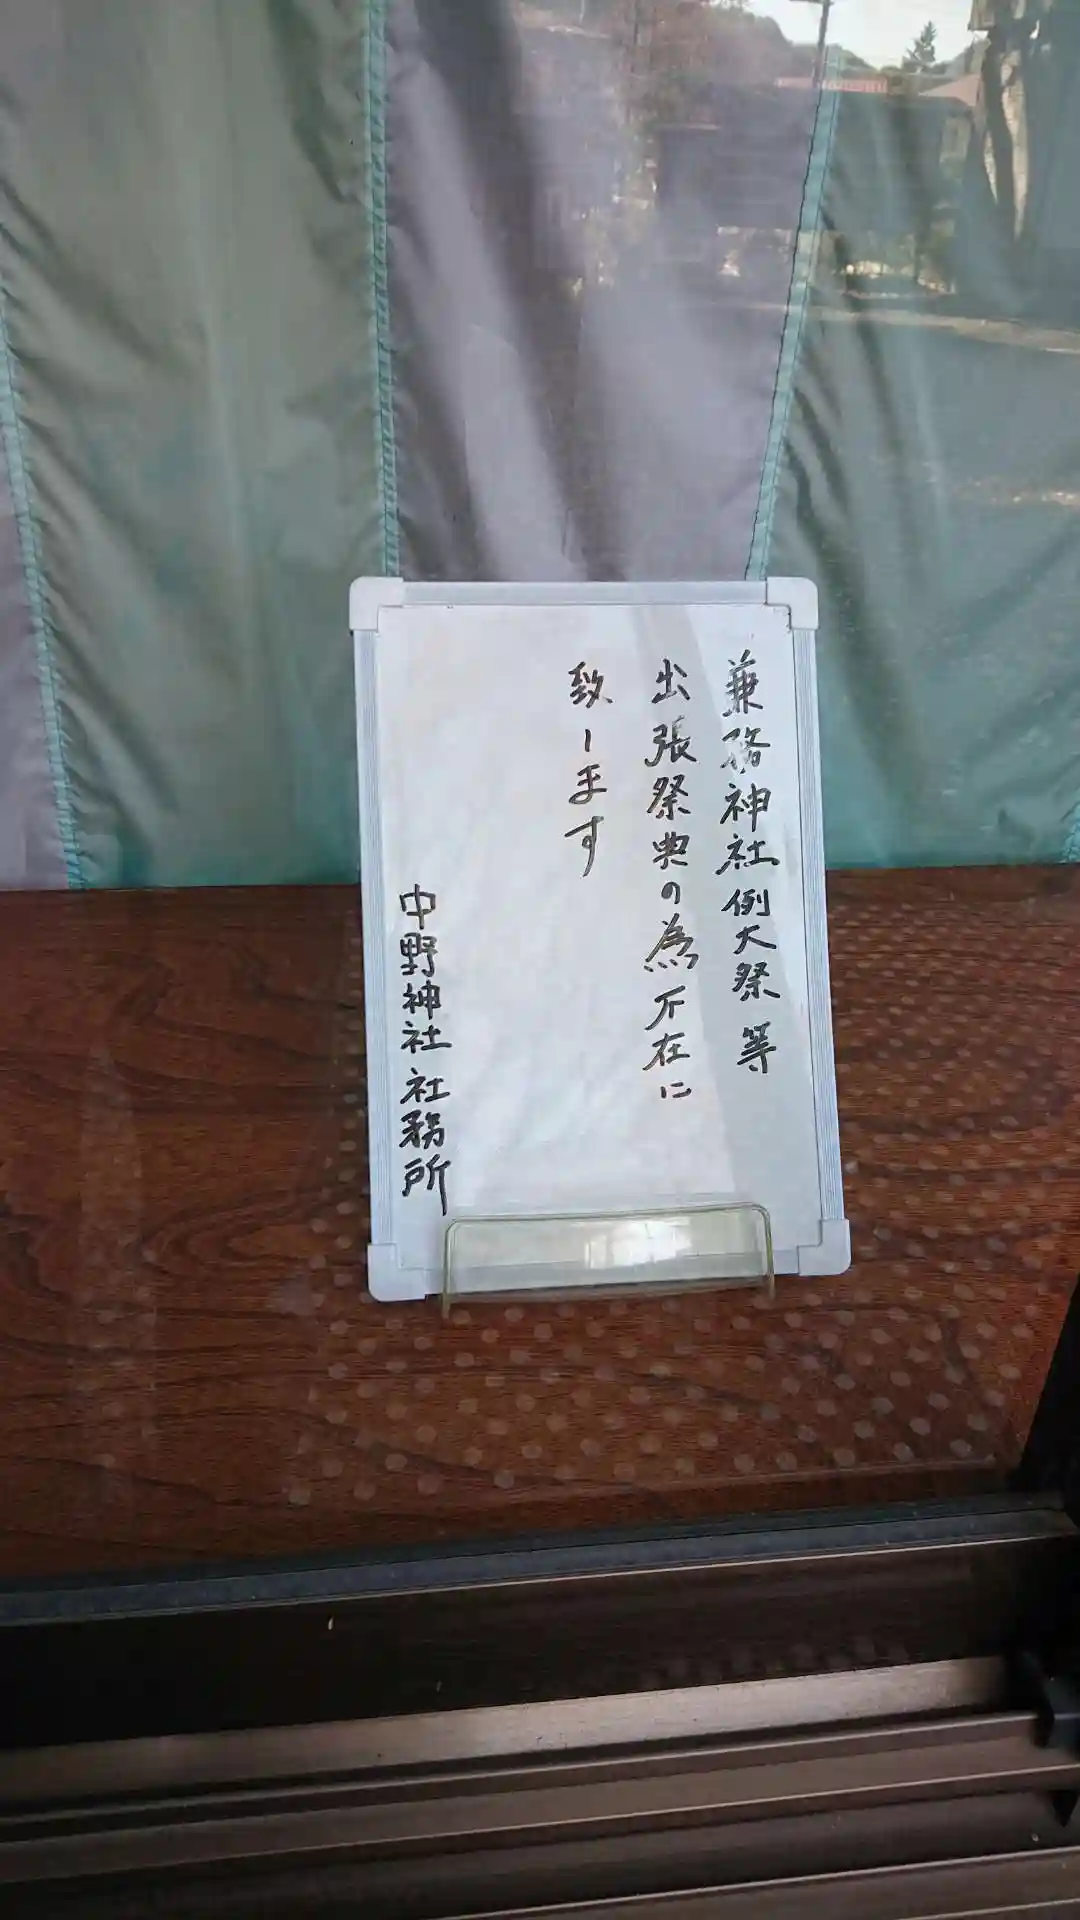 兼務神社例大祭等
出張祭典の為不在に
致します
中野神社社務所